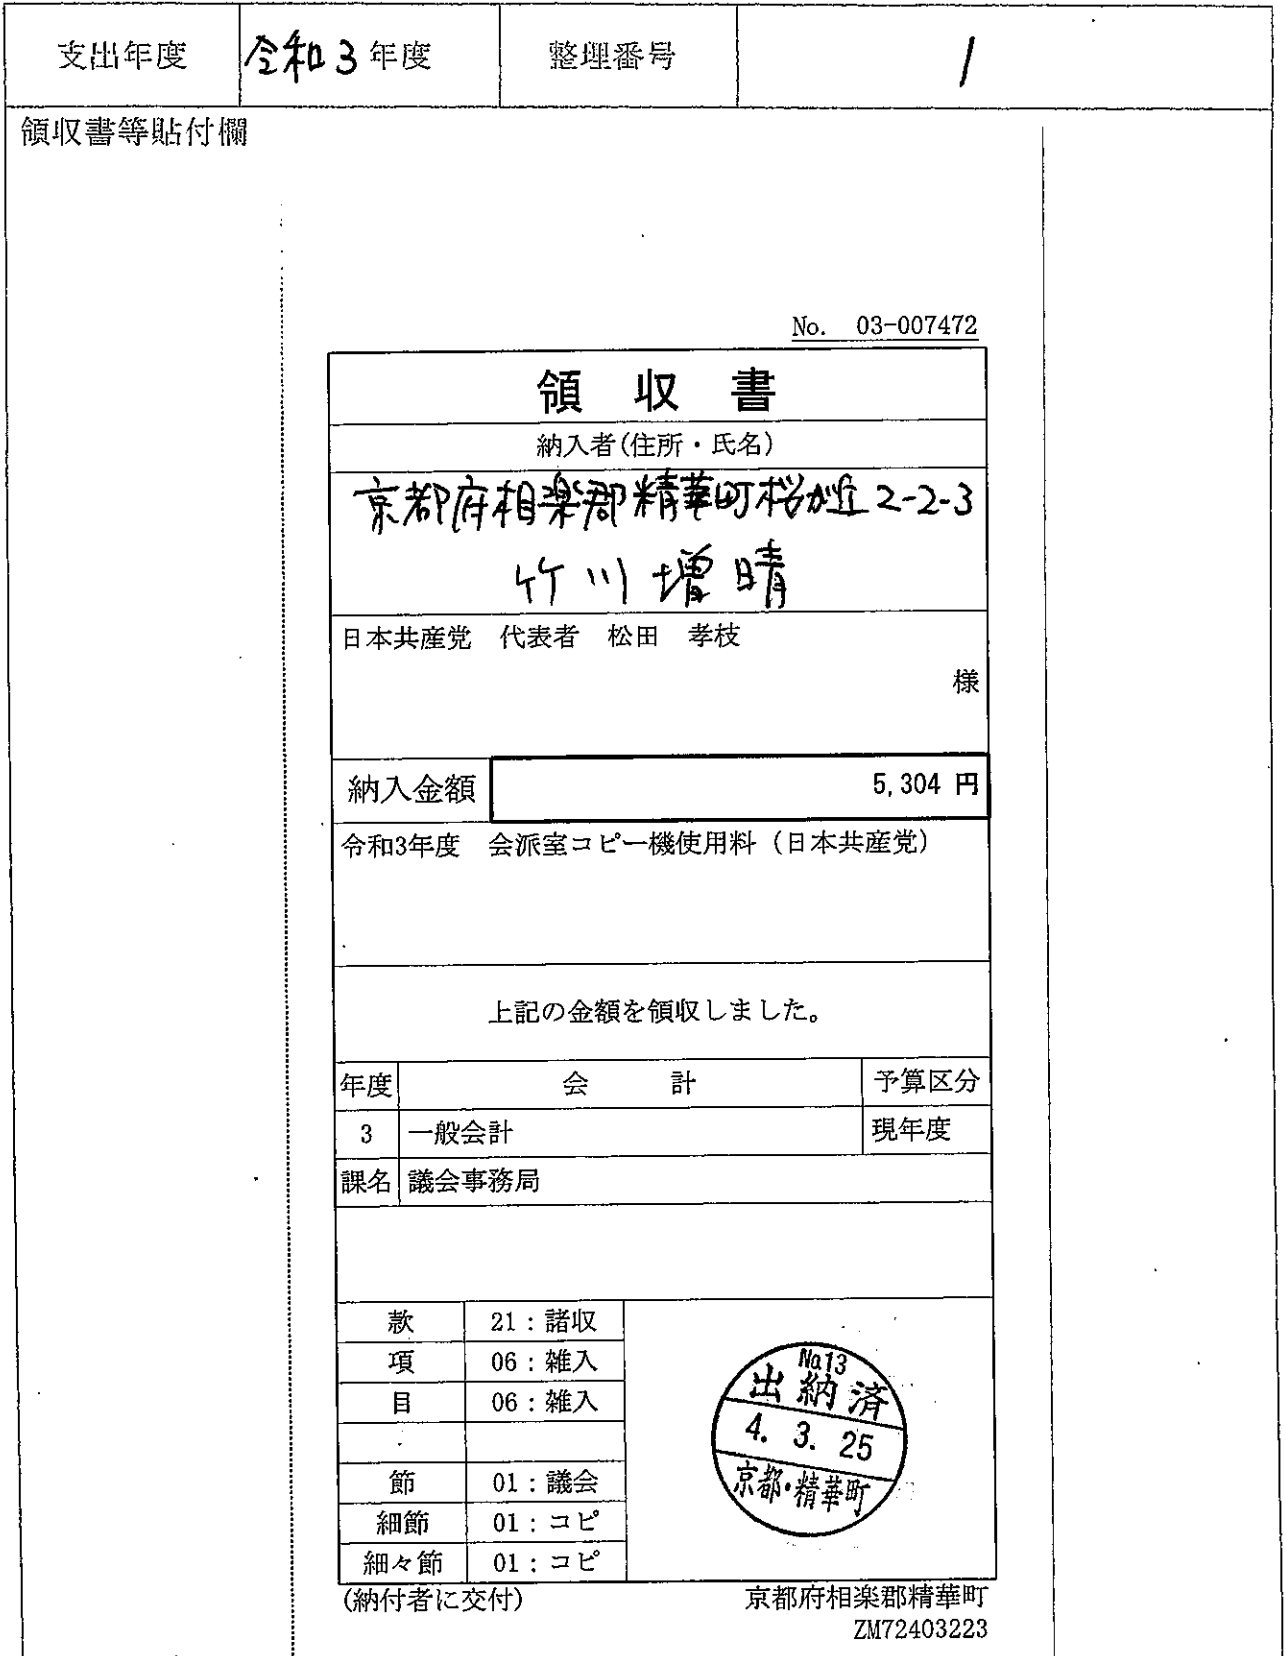 支出年度 令和3年度 整理番号 1
領収書等貼付欄
No. 03-007472
領 収 書
納入者(住所・氏名)
京都府相楽郡精華町桜が丘2-2-3
竹川増晴
日本共産党 代表者 松田 孝枝
様
納入金額 5,304 円
令和3年度 会派室コピー機使用料(日本共産党)
上記の金額を領収しました。
年度 会 計 予算区分
3 一般会計 現年度
課名 議会事務局
款 21:諸収
項 06:雑入
目 06:雑入
節 01:議会
細節 01:コピ
細々節 01:コピ
No.13
出納済
4. 3. 25
京都・精華町
(納付者に交付) 京都府相楽郡精華町
ZM72403223